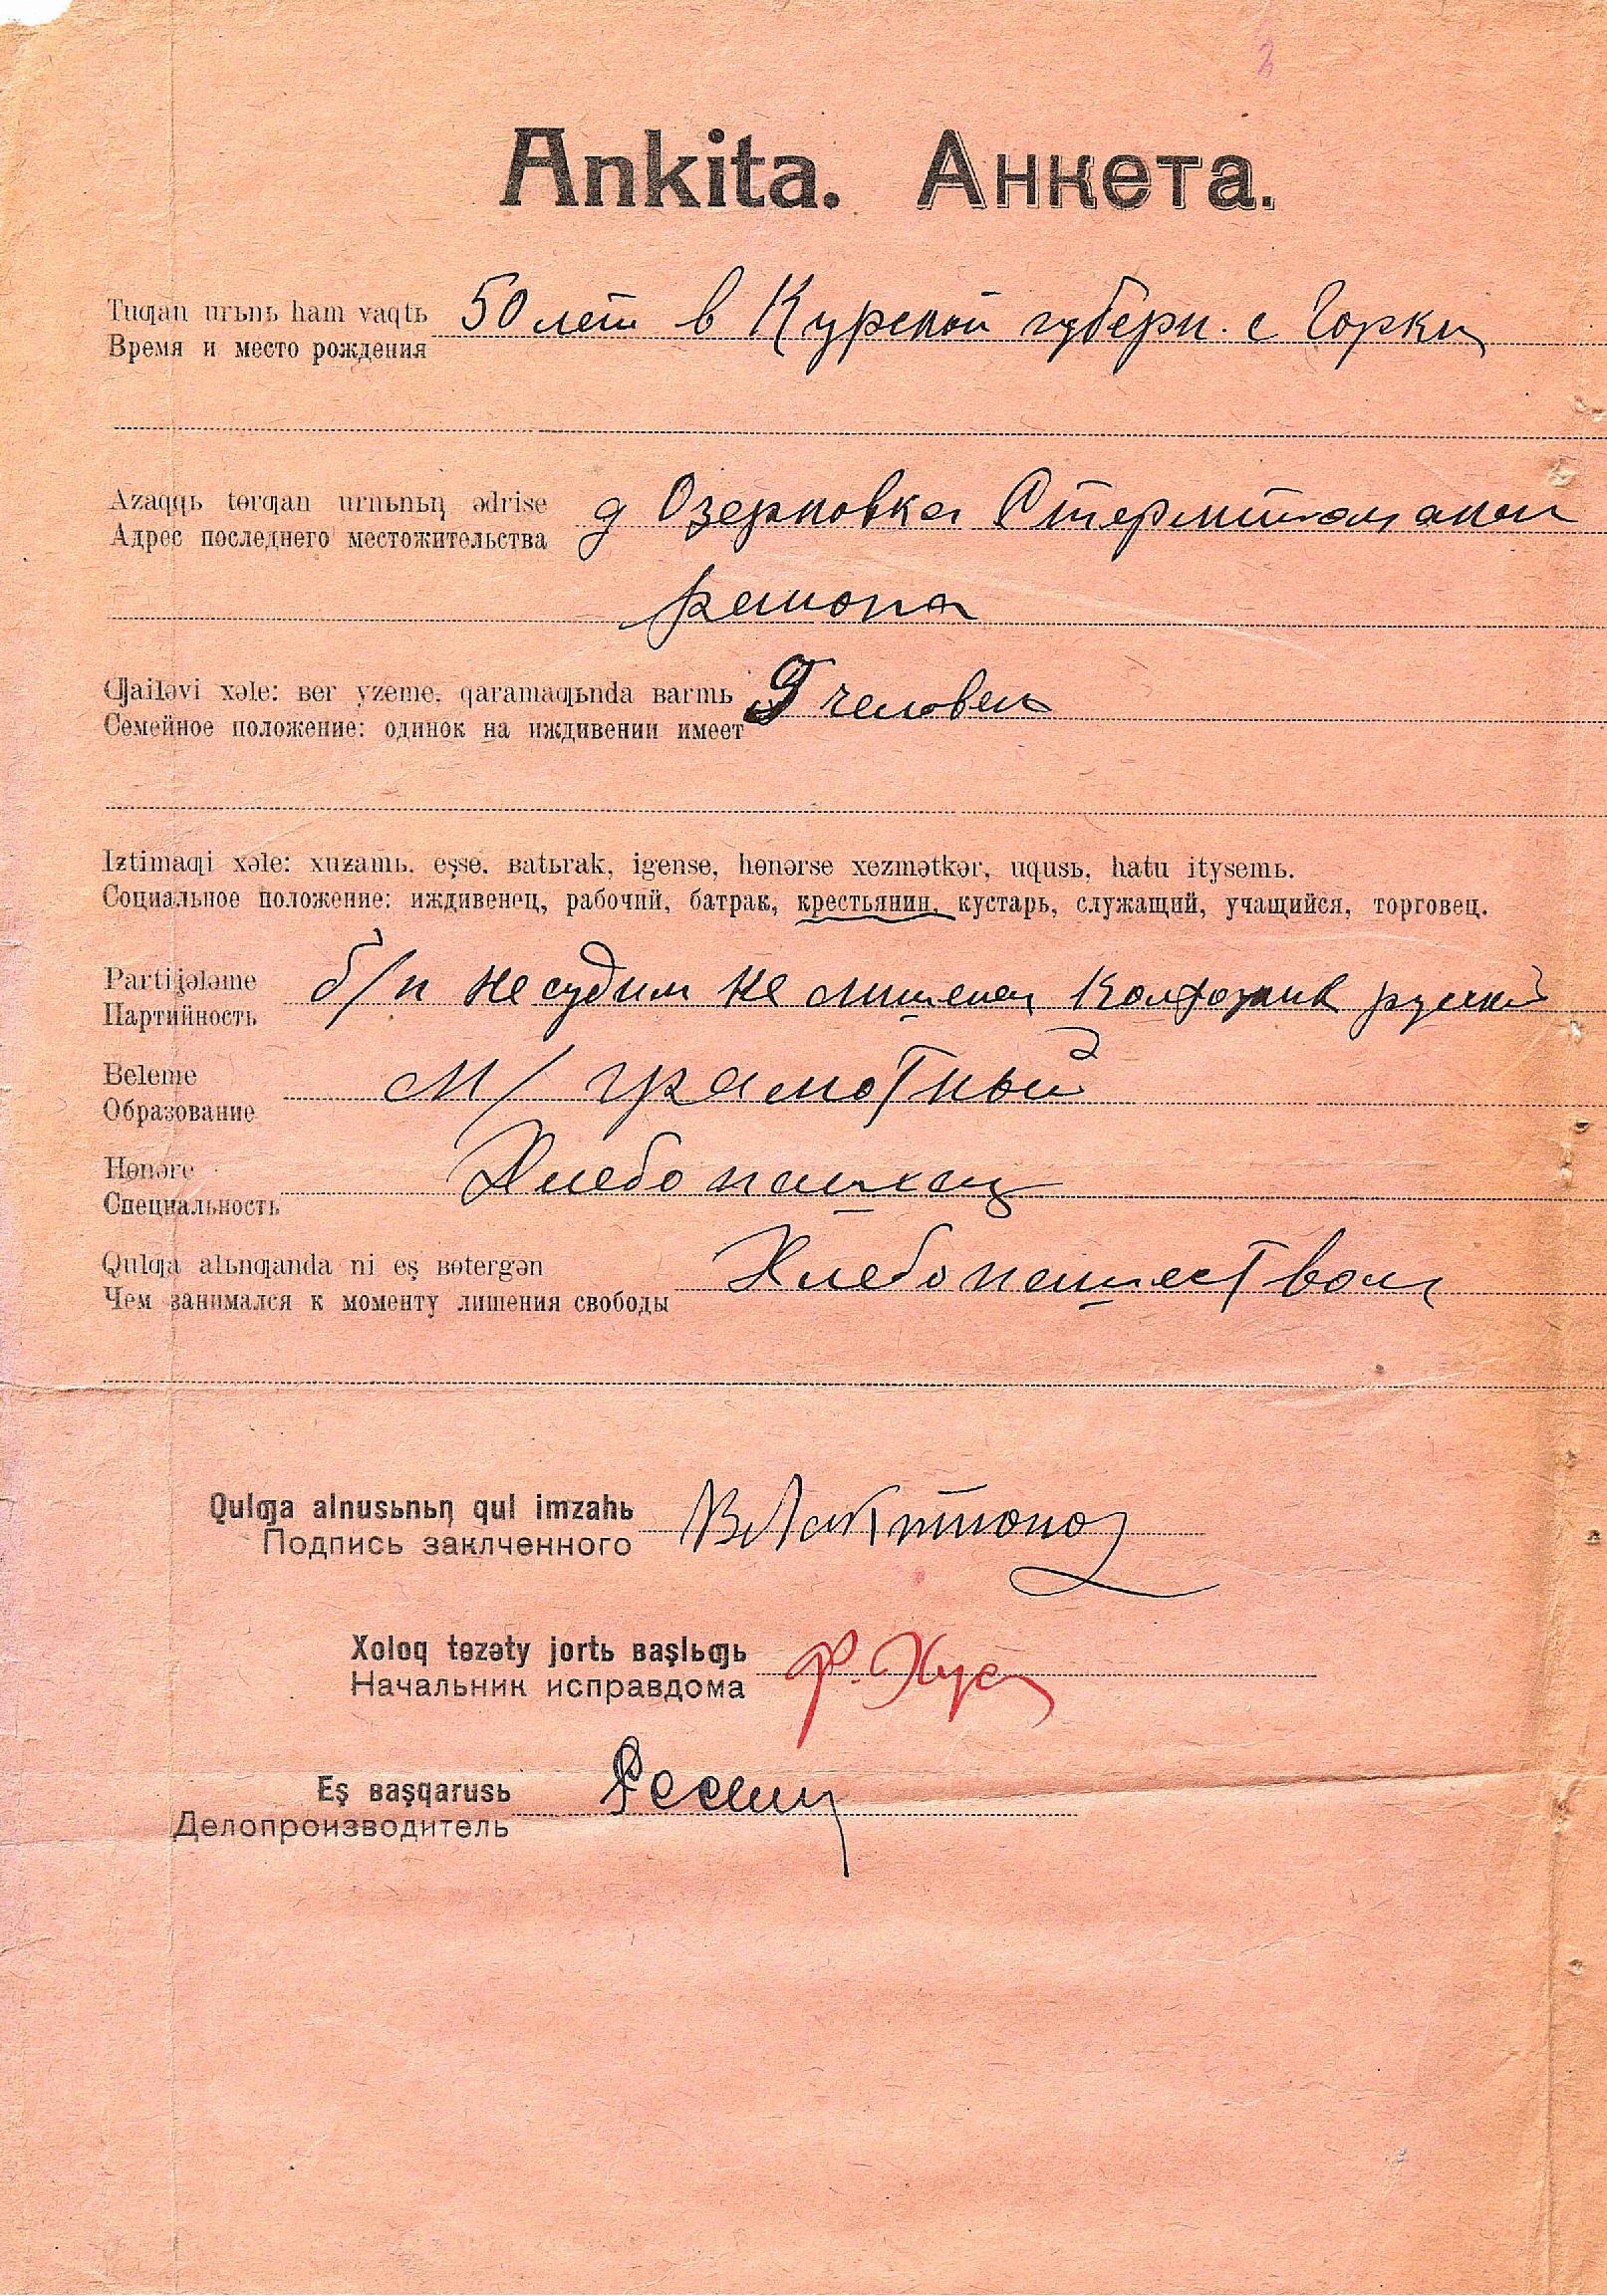 Ankita. Анкета.
Tuƣan urьnь ham vaqtь
Время и место рождения
50 лет в Курской губерн. с Горки
Azaqqь tөrƣan urnьnьꞑ ədrise
Адрес последнего местожительства
д Озерковка Стерлитамакск
района
Ƣailəvi xəle: ʙer yzeme, qaramaƣьnda ʙarmь
Семейное положение: одинок на иждивении имеет
9 человек
Iƶtimaƣi xəle: xuƶamь, eşse, ʙatьrak, igense, hөnərse xezmətkər, uqusь, hatu itysemь.
Социальное положение: иждивенец, рабочий, батрак, крестьянин, кустарь, служащий, учащийся, торговец.
Partijələme
Партийность
б/п не судим не лишенец колхозник русский
Beleme
Образование
м/грамотный
Hөnəre
Специальность
Хлебопашец
Qulƣa alьnƣanda ni eş ʙөtergən
Чем занимался к моменту лишения свободы
Хлебопашеством
Qulƣa alnusьnьꞑ qul imzahь
Подпись заклченного
В Лактионов
Xoloq tөzəty jortь ʙaşlьƣь
Начальник исправдома
Eş ʙaşqarusь
Делопроизводитель